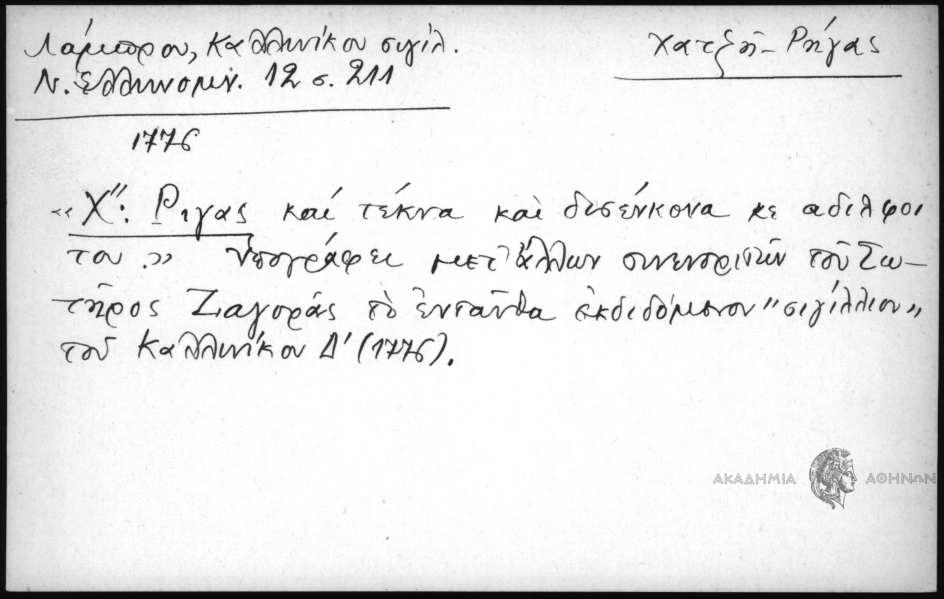 Λάμπρου, Καλλινίκου σιγίλ.
Ν. Ελληνομν. 12 σ. 211
Χατζῆ-Ρήγας
1776
«Χ": Ριγας καί τέκνα καὶ δισένκονα κε αδιλφοι
του.» ὑπογράφει μετ' ἄλλων συνενοριτῶν τοῦ Σω-
τῆρος Ζαγορᾶς τὸ ἐνταῦθα ἐκδιδόμενον "σιγίλλιον"
τοῦ Καλλινίκου Δ' (1776).
ΑΚΑΔΗΜΙΑ ΑΘΗΝΩΝ